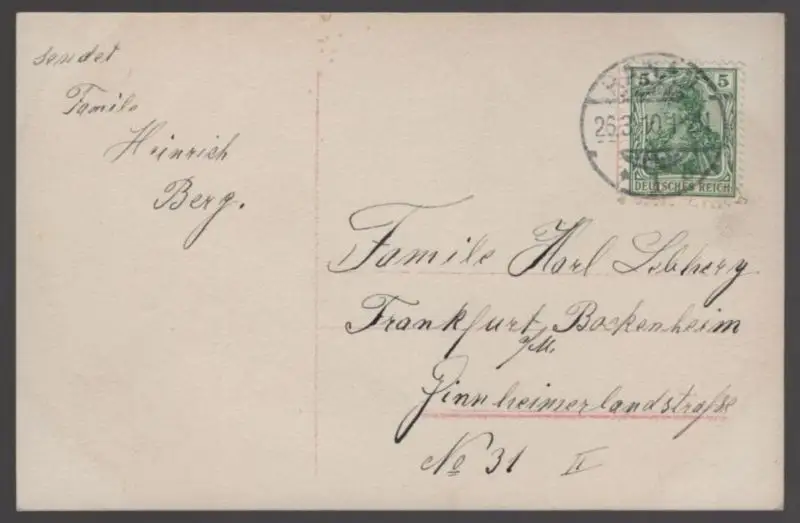 sendet
Familo
Heinrich
Berg.
5 5
26.3.10
DEUTSCHES REICH
Familo Karl Lobherg
Frankfurt Bockenheim
a/M.
Ginnheimerlandstraße
No 31 II